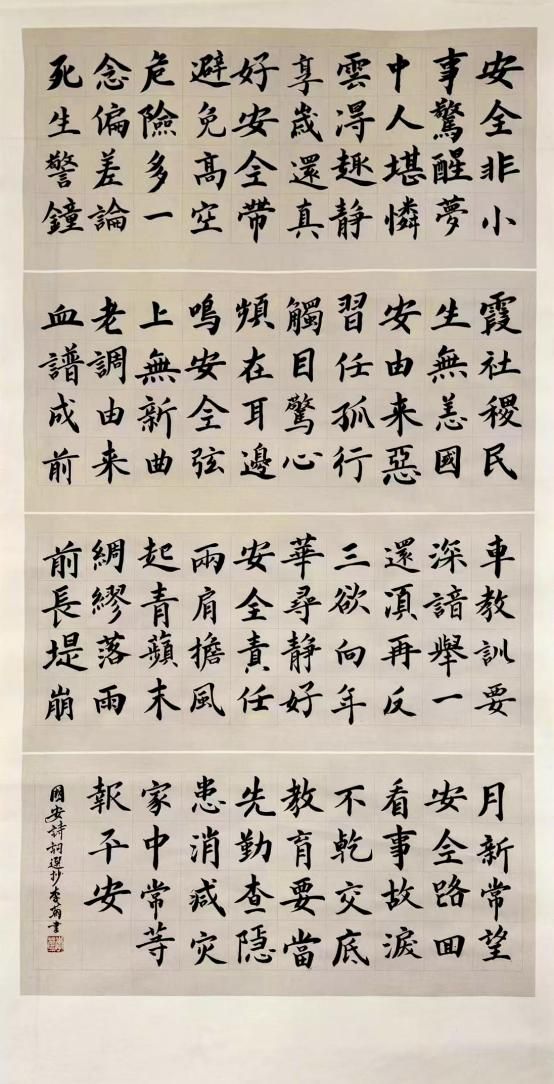 安全非小
事驚醒夢
中人堪憐
雲淂趣静
享歲還真
好安全帶
避免高空
危險多一
念偏差論
死生警鐘
霞社稷民
生無恙國
安由来惡
習任孤行
觸目驚心
頻在耳邊
鳴安全弦
上無新曲
老調由来
血譜成前
車教訓要
深諳舉一
還湏再反
三欲向年
華尋静好
安全責任
兩肩擔風
起青蘋末
綢繆落雨
前長堤崩
月新常望
安全路回
看事故淚
不乾交底
教育要當
先勤查隱
患消减灾
家中常等
報平安
國安詩詞選抄李書